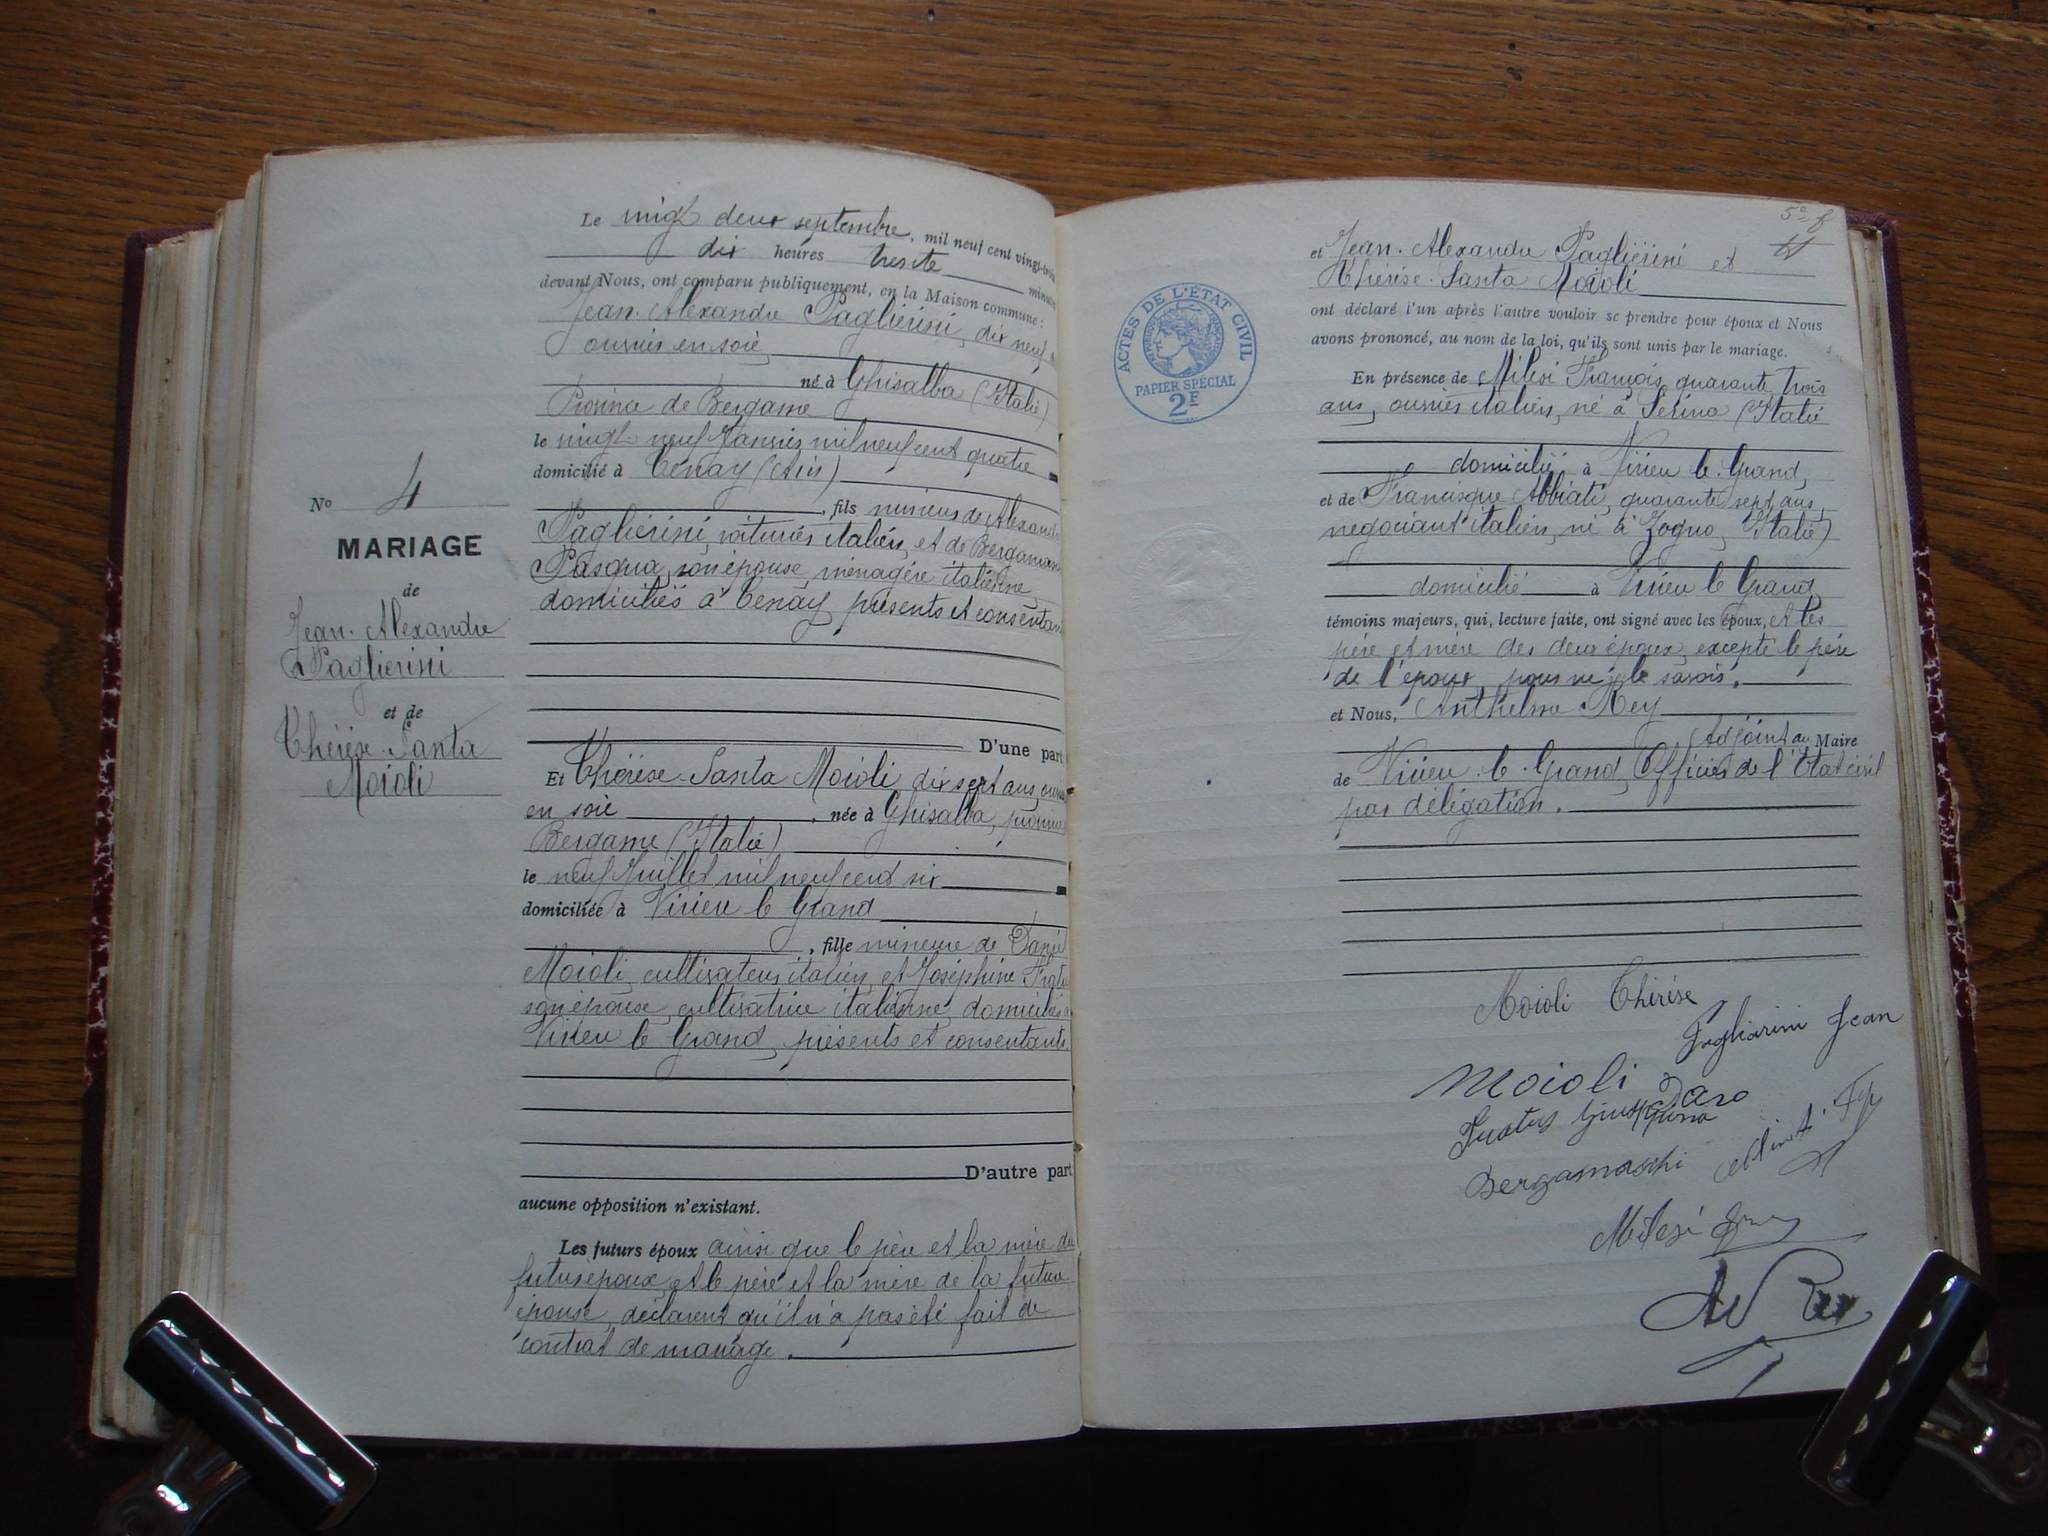 Le vingt deux septembre, mil neuf cent vingt-trois
dix heures trente minutes
devant Nous, ont comparu publiquement, en la Maison commune :
Jean-Alexandre Pagliérini, dix neuf
ouvrier en soie,
né à Ghisalba (Italie)
Province de Bergame
le vingt neuf Janvier mil neuf cent quatre
domicilié à Tenay (Ain)
, fils mineur de Alexandre
Pagliérini, voiturier italien, et de Bergamas
Pasqua, son épouse, menagère italienne,
domiciliés à Tenay, présents et consentan
D'une part
Et Thérèse-Santa Moioli, dix sept ans, ouv
en soie , née à Ghisalba, province
Bergame (Italie)
le neuf Juillet mil neuf cent six
domiciliée à Virieu le Grand
, fille mineure de Daniel
Moioli, cultivateur italien, et Joséphine
son épouse, cultivatrice italienne, domiciliés à
Virieu le Grand, présents et consentants.
D'autre part
aucune opposition n'existant.
Les futurs époux ainsi que le père et la mère du
futur époux, et le père et la mère de la future
épouse, déclarent qu'il n'a pas été fait de
contrat de mariage.
No 4
MARIAGE
de
Jean-Alexandre
Paglierini
et de
Thérèse-Santa
Moioli
5e f
et Jean-Alexandre Pagliérini et
Thérèse-Santa Moioli
ont déclaré l'un après l'autre vouloir se prendre pour époux et Nous
avons prononcé, au nom de la loi, qu'ils sont unis par le mariage.
En présence de Milesi François, quarante trois
ans, ouvrier italien, né à Sérina (Italie
domicilié à Virieu le Grand,
et de Francisque Abbiati, quarante sept ans,
negociant italien, né à Zogno, (Italie)
domicilié à Virieu le Grand,
témoins majeurs, qui, lecture faite, ont signé avec les époux, et les
père et mère des deux époux, excepté le père
de l'époux, pour ne le savoir.
et Nous, Anthelme Rey
Adjoint au Maire
de Virieu-le-Grand, Officier de l'Etat civil
par délégation.
ACTES DE L'ÉTAT CIVIL
PAPIER SPÉCIAL
2F
Moioli Thérèse
Pagliarini Jean
Moioli
Bergamaschi
Milesi